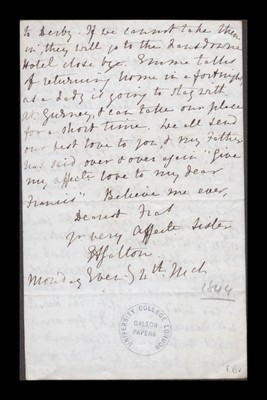 to Derby. If we cannot take them
in, they will go to the Lansdowne
Hotel close bye. Emma talks
of returning home in a fortnight
as a lady is going to stay with
& can take our place
for a short time. We all send
our best love to you & my Father
has said over & over again "Give
my affecte love to my dear
Francis" Believe me ever,
Dearest Frat
yr very affecte Sister
Galton
Monday Eveng 4th Mch
1844
UNIVERSITY COLLEGE LONDON
GALTON
PAPERS